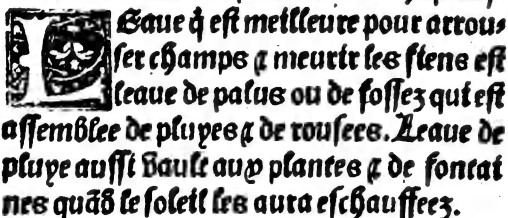 LEaue q̃ est meilleure pour arrou⸗
ser champs ⁊ meurir les fiens est
leaue de palus ou de fossez qui est
assemblee de pluyes ⁊ de rousees. Leaue de
pluye aussi vault aux plantes ⁊ de fontai
nes quãd le soleil les aura eschauffeez.